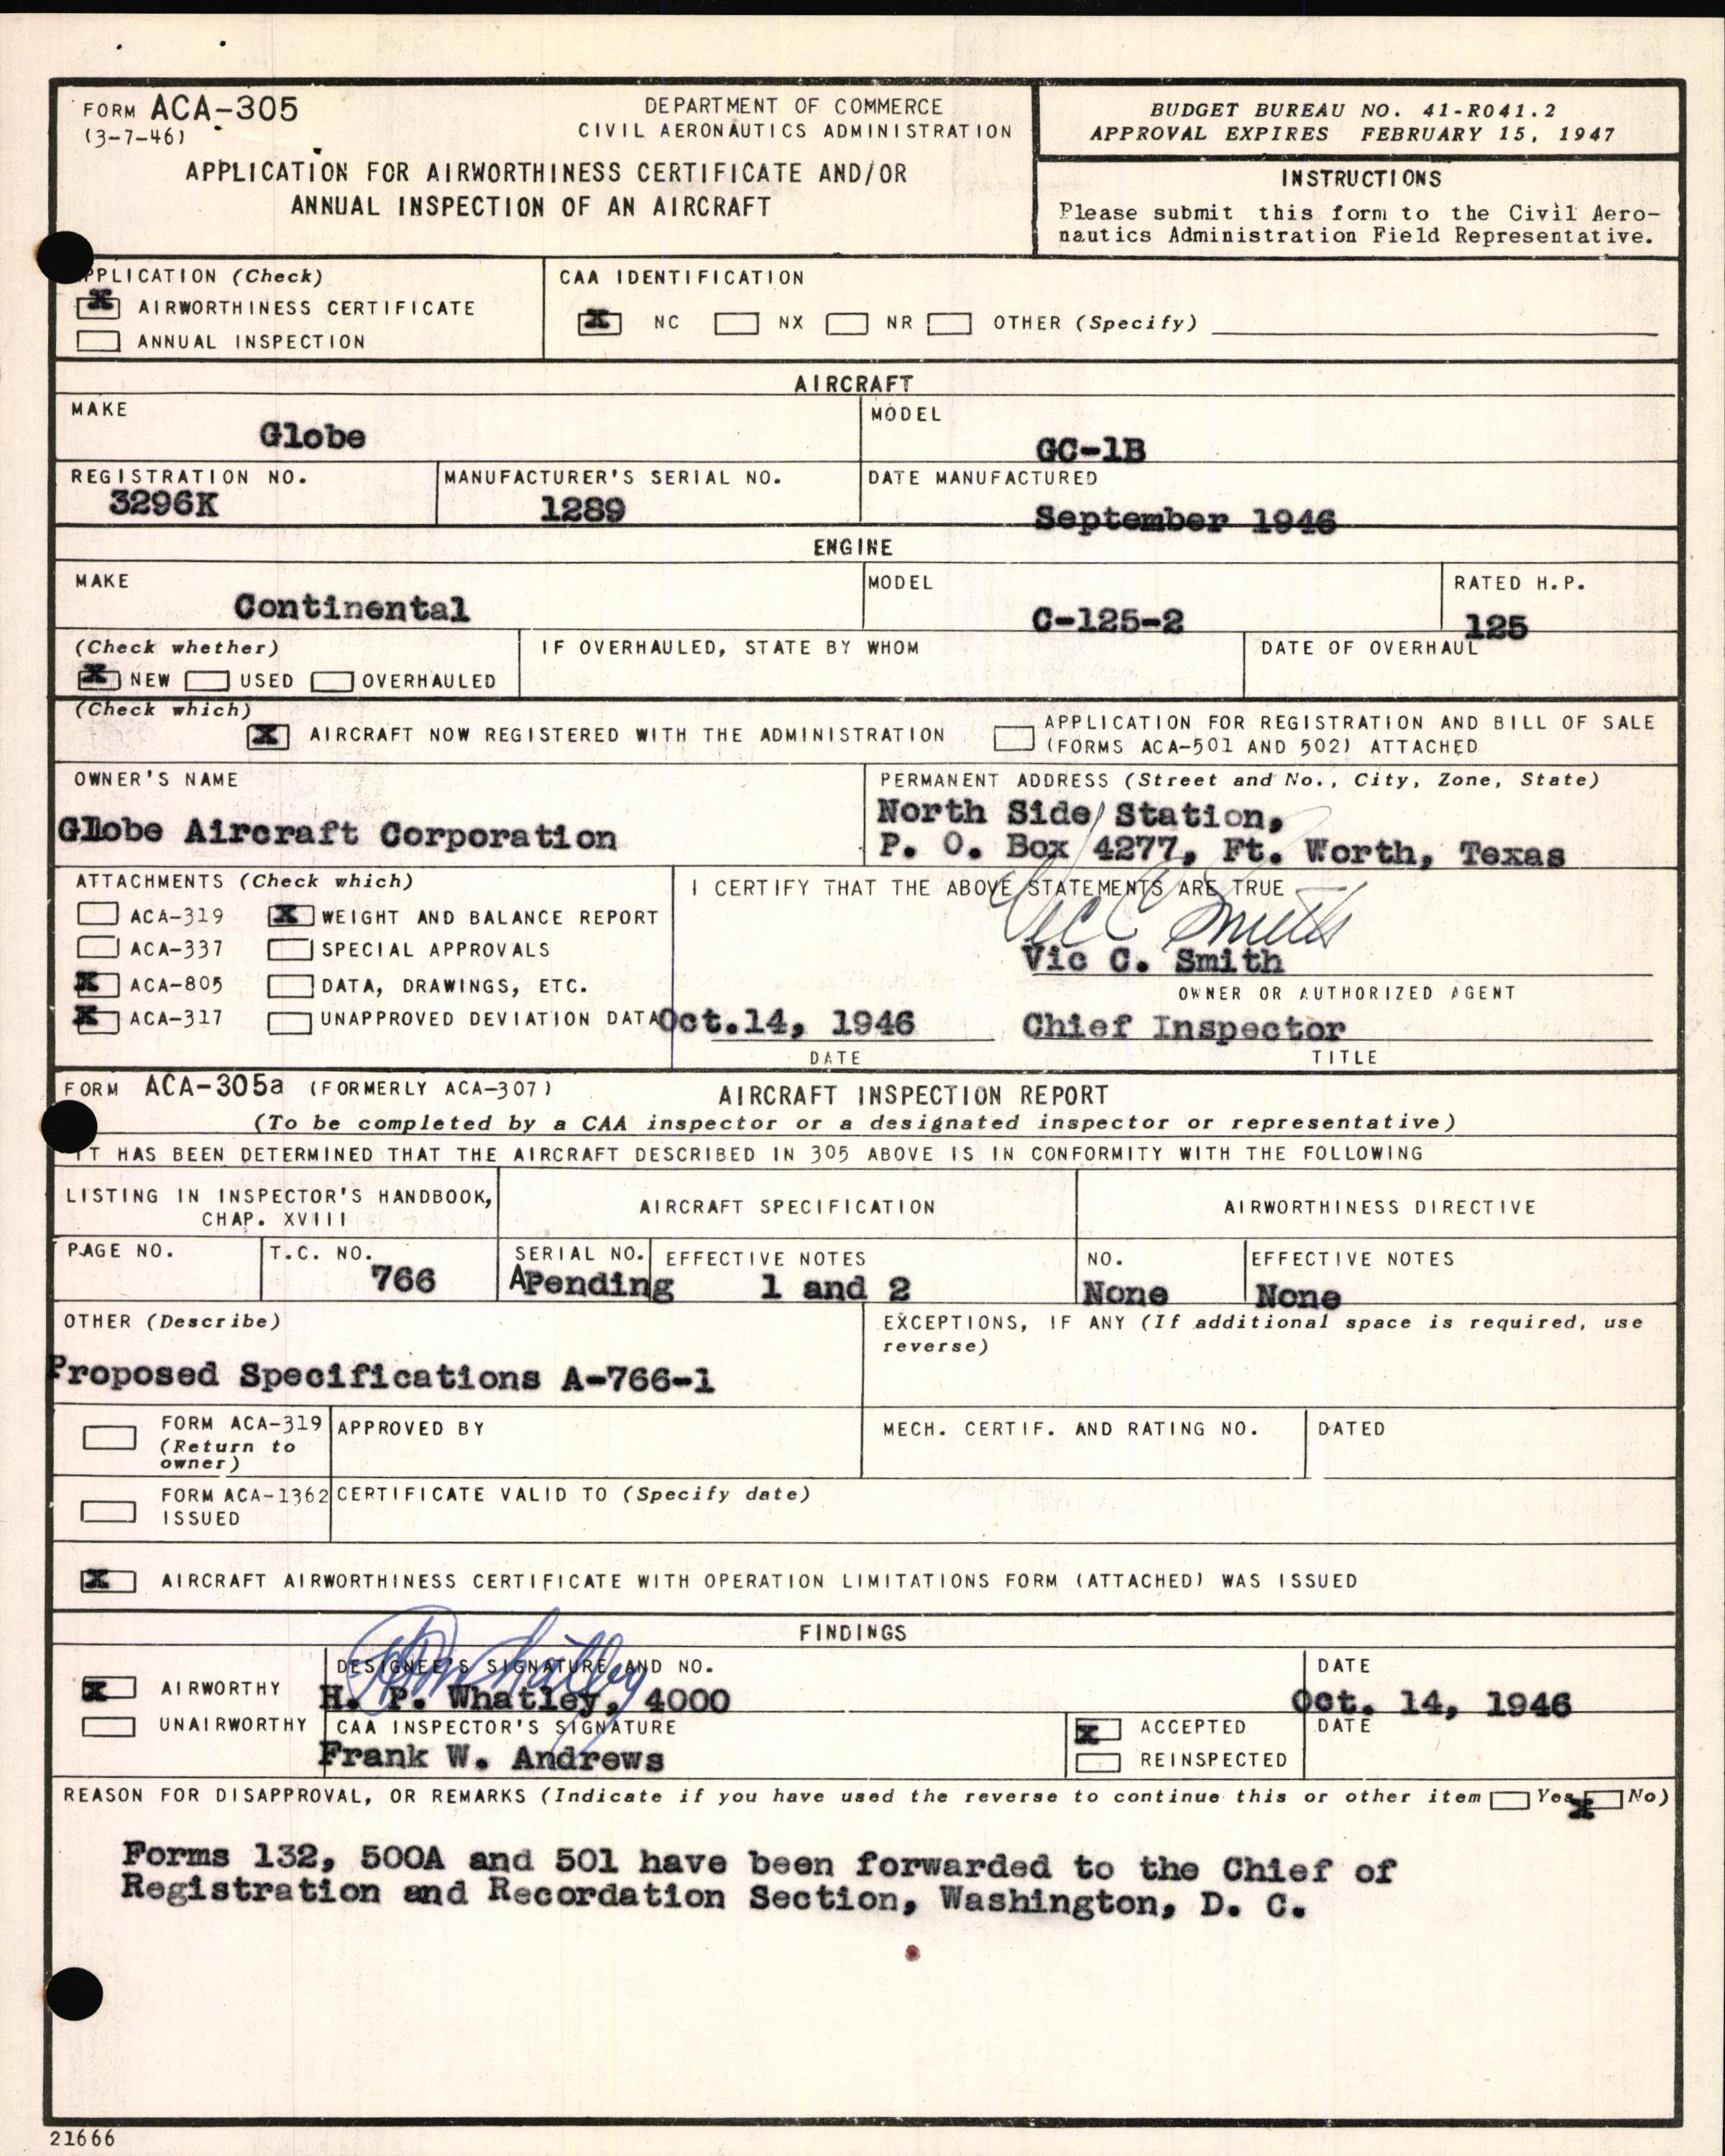 FORM ACA-305
(3-7-46)
DEPARTMENT OF COMMERCE
CIVIL AERONAUTICS ADMINISTRATION
APPLICATION FOR AIRWORTHINESS CERTIFICATE AND/OR
ANNUAL INSPECTION OF AN AIRCRAFT
BUDGET BUREAU NO. 41-R041.2
APPROVAL EXPIRES FEBRUARY 15, 1947
INSTRUCTIONS
Please submit this form to the Civil Aero-
nautics Administration Field Representative.
PPLICATION (Check)
X AIRWORTHINESS CERTIFICATE
ANNUAL INSPECTION
CAA IDENTIFICATION
X NC NX NR OTHER (Specify)
AIRCRAFT
MAKE
Globe
MODEL
GC-1B
REGISTRATION NO.
3296K
MANUFACTURER'S SERIAL NO.
1289
DATE MANUFACTURED
September 1946
ENGINE
MAKE
Continental
MODEL
C-125-2
RATED H.P.
125
(Check whether)
X NEW USED OVERHAULED
IF OVERHAULED, STATE BY WHOM
DATE OF OVERHAUL
(Check which)
X AIRCRAFT NOW REGISTERED WITH THE ADMINISTRATION
APPLICATION FOR REGISTRATION AND BILL OF SALE
(FORMS ACA-501 AND 502) ATTACHED
OWNER'S NAME
Globe Aircraft Corporation
PERMANENT ADDRESS (Street and No., City, Zone, State)
North Side Station,
P. O. Box 4277, Ft. Worth, Texas
ATTACHMENTS (Check which)
ACA-319 X WEIGHT AND BALANCE REPORT
ACA-337 SPECIAL APPROVALS
X ACA-805 DATA, DRAWINGS, ETC.
X ACA-317 UNAPPROVED DEVIATION DATA
I CERTIFY THAT THE ABOVE STATEMENTS ARE TRUE
Vic C Smith
Vic C. Smith
OWNER OR AUTHORIZED AGENT
Oct.14, 1946
DATE
Chief Inspector
TITLE
FORM ACA-305a (FORMERLY ACA-307)
AIRCRAFT INSPECTION REPORT
(To be completed by a CAA inspector or a designated inspector or representative)
IT HAS BEEN DETERMINED THAT THE AIRCRAFT DESCRIBED IN 305 ABOVE IS IN CONFORMITY WITH THE FOLLOWING
LISTING IN INSPECTOR'S HANDBOOK,
CHAP. XVIII
AIRCRAFT SPECIFICATION
AIRWORTHINESS DIRECTIVE
PAGE NO.
T.C. NO.
766
SERIAL NO.
APending
EFFECTIVE NOTES
1 and 2
NO.
None
EFFECTIVE NOTES
None
OTHER (Describe)
Proposed Specifications A-766-1
EXCEPTIONS, IF ANY (If additional space is required, use
reverse)
FORM ACA-319
(Return to
owner)
APPROVED BY
MECH. CERTIF. AND RATING NO.
DATED
FORM ACA-1362
ISSUED
CERTIFICATE VALID TO (Specify date)
X AIRCRAFT AIRWORTHINESS CERTIFICATE WITH OPERATION LIMITATIONS FORM (ATTACHED) WAS ISSUED
FINDINGS
X AIRWORTHY
UNAIRWORTHY
DESIGNEE'S SIGNATURE AND NO.
H P Whatley
H. P. Whatley, 4000
DATE
Oct. 14, 1946
CAA INSPECTOR'S SIGNATURE
Frank W. Andrews
X ACCEPTED
REINSPECTED
DATE
REASON FOR DISAPPROVAL, OR REMARKS (Indicate if you have used the reverse to continue this or other item Yes X No)
Forms 132, 500A and 501 have been forwarded to the Chief of
Registration and Recordation Section, Washington, D. C.
21666